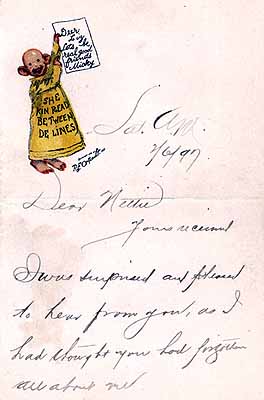 Dear
real good
friends
Micky
SHE
KIN READ
BETWEEN
DE LINES
Sat. A.M.
2/6/97
Dear
Yours received
I was surprised and pleased
to hear from you, as I
had thought you had forgotten
all about me